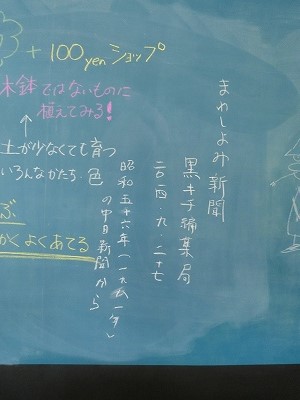 まわしよみ新聞
黒キチ編集局
二〇一四.九.二十七
昭和五十六年(一九八一年)
の中日新聞から
+100yenショップ
木鉢ではないものに
植えてみる!
↑
土が少なくても育つ
いろんなかたち、色
ぶ
かくよくあてる